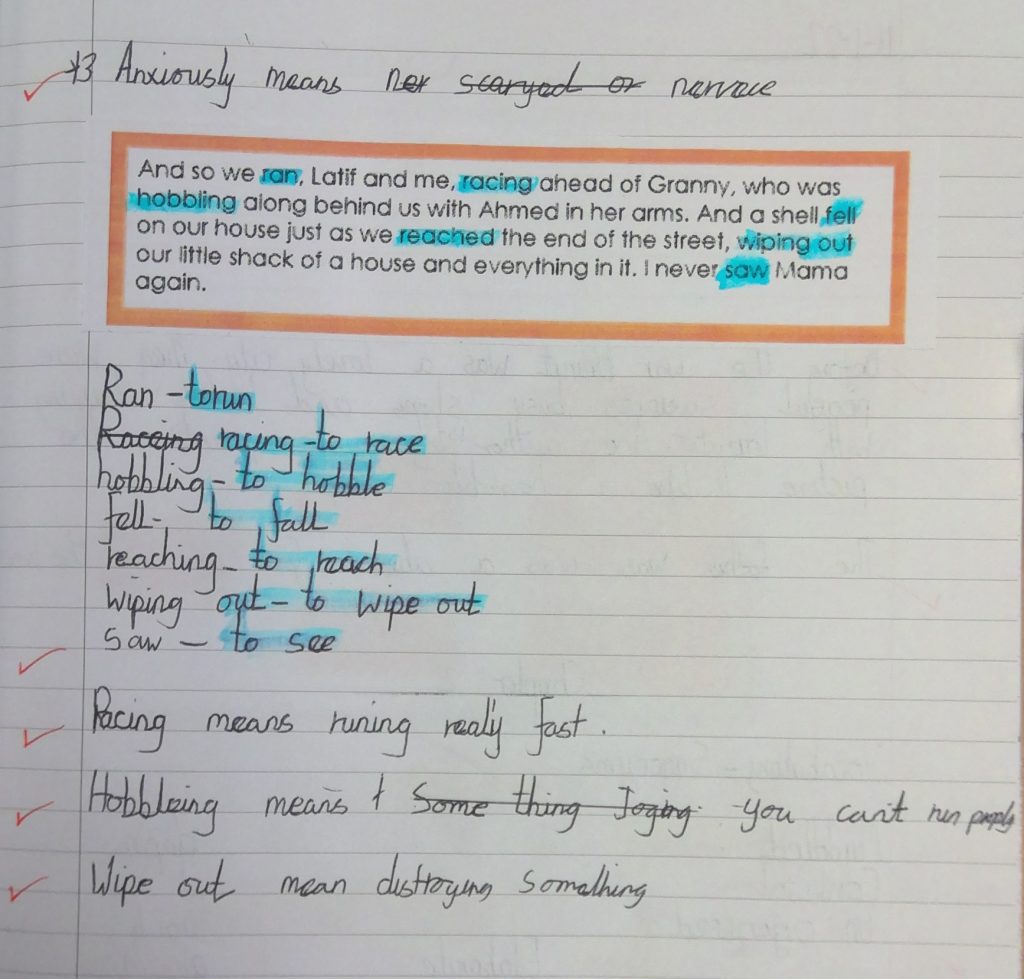 *3 Anxiously means ner scaryed or nervace
And so we ran, Latif and me, racing ahead of Granny, who was
hobbling along behind us with Ahmed in her arms. And a shell fell
on our house just as we reached the end of the street, wiping out
our little shack of a house and everything in it. I never saw Mama
again.
Ran - to run
Raceing racing - to race
hobbling - to hobble
fell - to fall
reaching - to reach
wiping out - to wipe out
saw - to see
Racing means runing really fast.
Hobbleing means t Some thing Joging you can't run
Wipe out mean distroying something